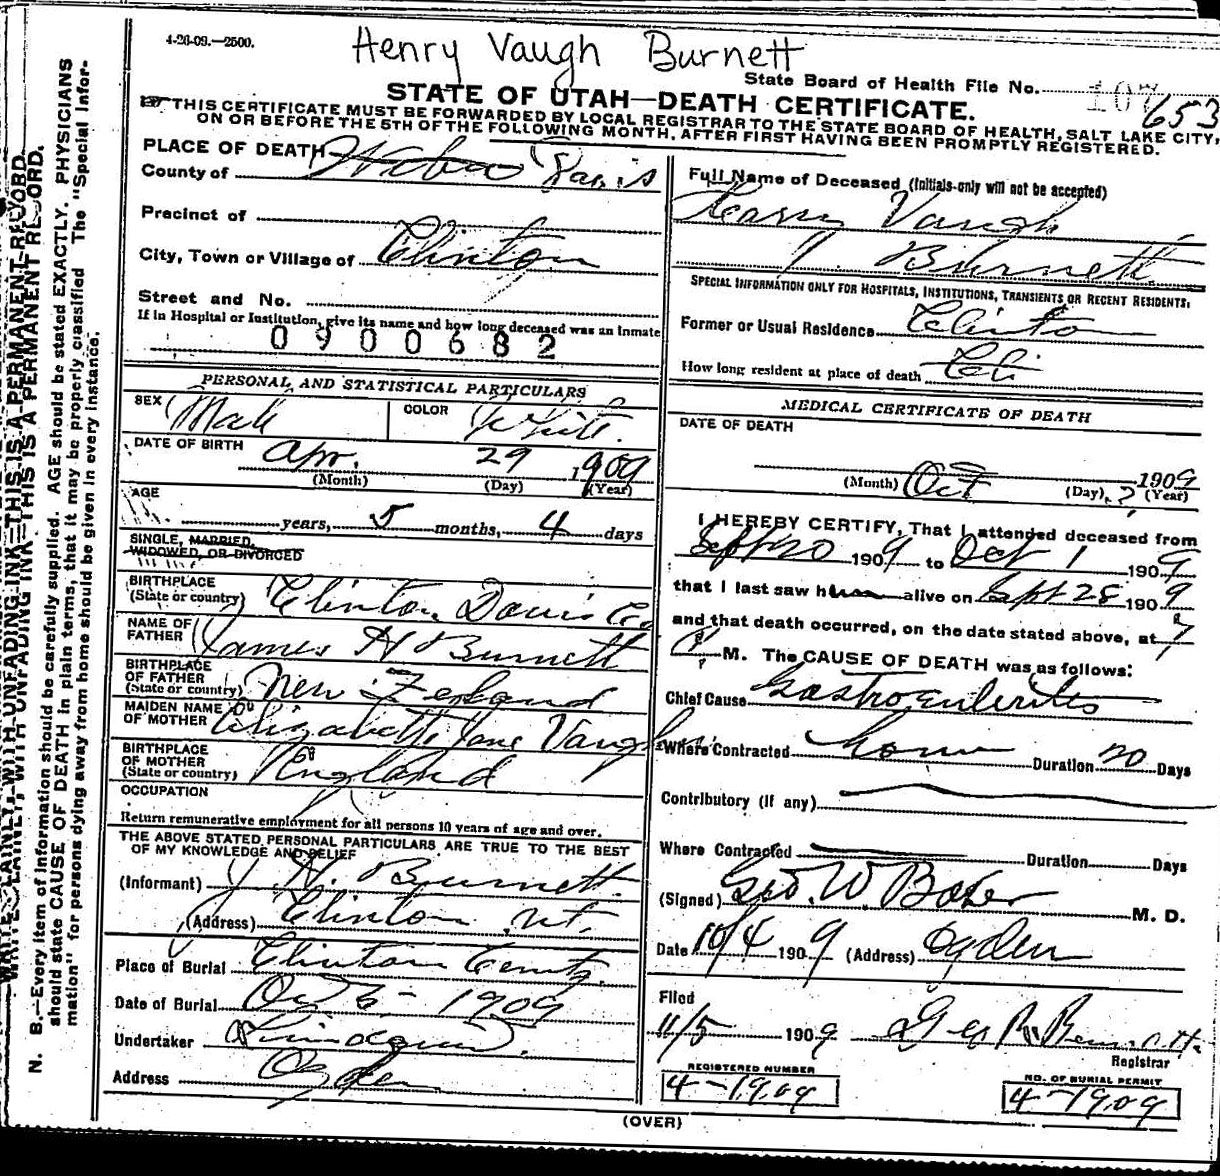 4-26-09.—2500.
Henry Vaugh Burnett
State Board of Health File No. 107 653
STATE OF UTAH—DEATH CERTIFICATE.
THIS CERTIFICATE MUST BE FORWARDED BY LOCAL REGISTRAR TO THE STATE BOARD OF HEALTH, SALT LAKE CITY,
ON OR BEFORE THE 5TH OF THE FOLLOWING MONTH, AFTER FIRST HAVING BEEN PROMPTLY REGISTERED.
PLACE OF DEATH
County of Weber Davis
Precinct of
City, Town or Village of Clinton
Street and No.
If in Hospital or Institution, give its name and how long deceased was an inmate
0900682
PERSONAL AND STATISTICAL PARTICULARS
SEX Male COLOR White.
DATE OF BIRTH Apr. 29 1909
(Month) (Day) (Year)
AGE
years, 5 months, 4 days
SINGLE, MARRIED,
WIDOWED, OR DIVORCED
BIRTHPLACE
(State or country) Clinton. Davis Co.
NAME OF
FATHER James H Burnett
BIRTHPLACE
OF FATHER
(State or country) New Zealand
MAIDEN NAME
OF MOTHER Elizabeth Jane Vaugh
BIRTHPLACE
OF MOTHER
(State or country) England
OCCUPATION
Return remunerative employment for all persons 10 years of age and over.
THE ABOVE STATED PERSONAL PARTICULARS ARE TRUE TO THE BEST
OF MY KNOWLEDGE AND BELIEF
(Informant) J. H. Burnett.
(Address) Clinton Ut.
Place of Burial Clinton
Date of Burial Oct 6 - 1909
Undertaker
Address Ogden
Full Name of Deceased (Initials only will not be accepted)
Henry Vaugh
Burnett.
SPECIAL INFORMATION ONLY FOR HOSPITALS, INSTITUTIONS, TRANSIENTS OR RECENT RESIDENTS:
Former or Usual Residence Clinton
How long resident at place of death
MEDICAL CERTIFICATE OF DEATH
DATE OF DEATH
1909
(Month) Oct (Day) (Year)
I HEREBY CERTIFY, That I attended deceased from
Sept 20 1909 to Oct 1 1909
that I last saw h alive on Sept 28 1909
and that death occurred, on the date stated above, at 7
P. M. The CAUSE OF DEATH was as follows:
Chief Cause Gastro enteritis
Where Contracted home Duration 20 Days
Contributory (if any)
Where Contracted Duration Days
(Signed) Geo. W. Baker M. D.
Date 10/4 1909 (Address) Ogden
Filed
11/5 1909 Geo R
Registrar
REGISTERED NUMBER
4-1909
NO. OF BURIAL PERMIT
4-1909
(OVER)
WRITE PLAINLY, WITH UNFADING INK—THIS IS A PERMANENT RECORD.
N. B.—Every item of information should be carefully supplied. AGE should be stated EXACTLY. PHYSICIANS
should state CAUSE OF DEATH in plain terms, that it may be properly classified The "Special Infor-
mation" for persons dying away from home should be given in every instance.